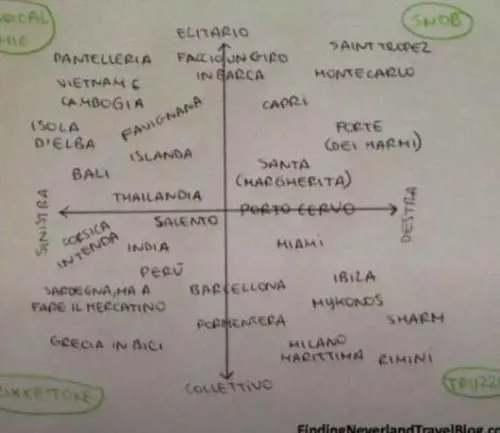 RADICAL
CHIC
ELITARIO
SNOB
PANTELLERIA
FACCIO UN GIRO
IN BARCA
SAINT TROPEZ
MONTECARLO
VIETNAM E
CAMBOGIA
FAVIGNANA
CAPRI
ISOLA
D'ELBA
FORTE
(DEI MARMI)
ISLANDA
BALI
SANTA
(MARGHERITA)
THAILANDIA
SINISTRA
PORTO CERVO
DESTRA
SALENTO
CORSICA
IN TENDA
INDIA
MIAMI
PERÙ
SARDEGNA, MA A
FARE IL MERCATINO
BARCELLONA
IBIZA
MYKONOS
FORMENTERA
SHARM
GRECIA IN BICI
MILANO
MARITTIMA
RIMINI
COLLETTIVO
FindingNeverlandTravelBlog.co